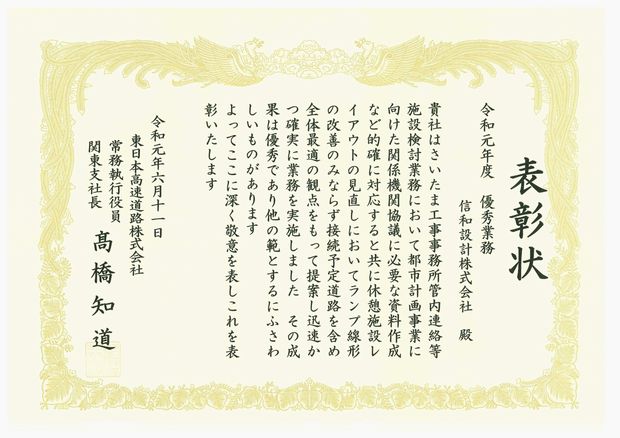 表彰状
令和元年度　優秀業務
信和設計株式会社　殿
貴社はさいたま工事事務所管内連絡等
施設検討業務において都市計画事業に
向けた関係機関協議に必要な資料作成
など的確に対応すると共に休憩施設レ
イアウトの見直しにおいてランプ線形
の改善のみならず接続予定道路を含め
全体最適の観点をもって提案し迅速か
つ確実に業務を実施しました　その成
果は優秀であり他の範とするにふさわ
しいものがあります
よってここに深く敬意を表しこれを表
彰いたします
令和元年六月十一日
東日本高速道路株式会社
常務執行役員
関東支社長
髙橋知道